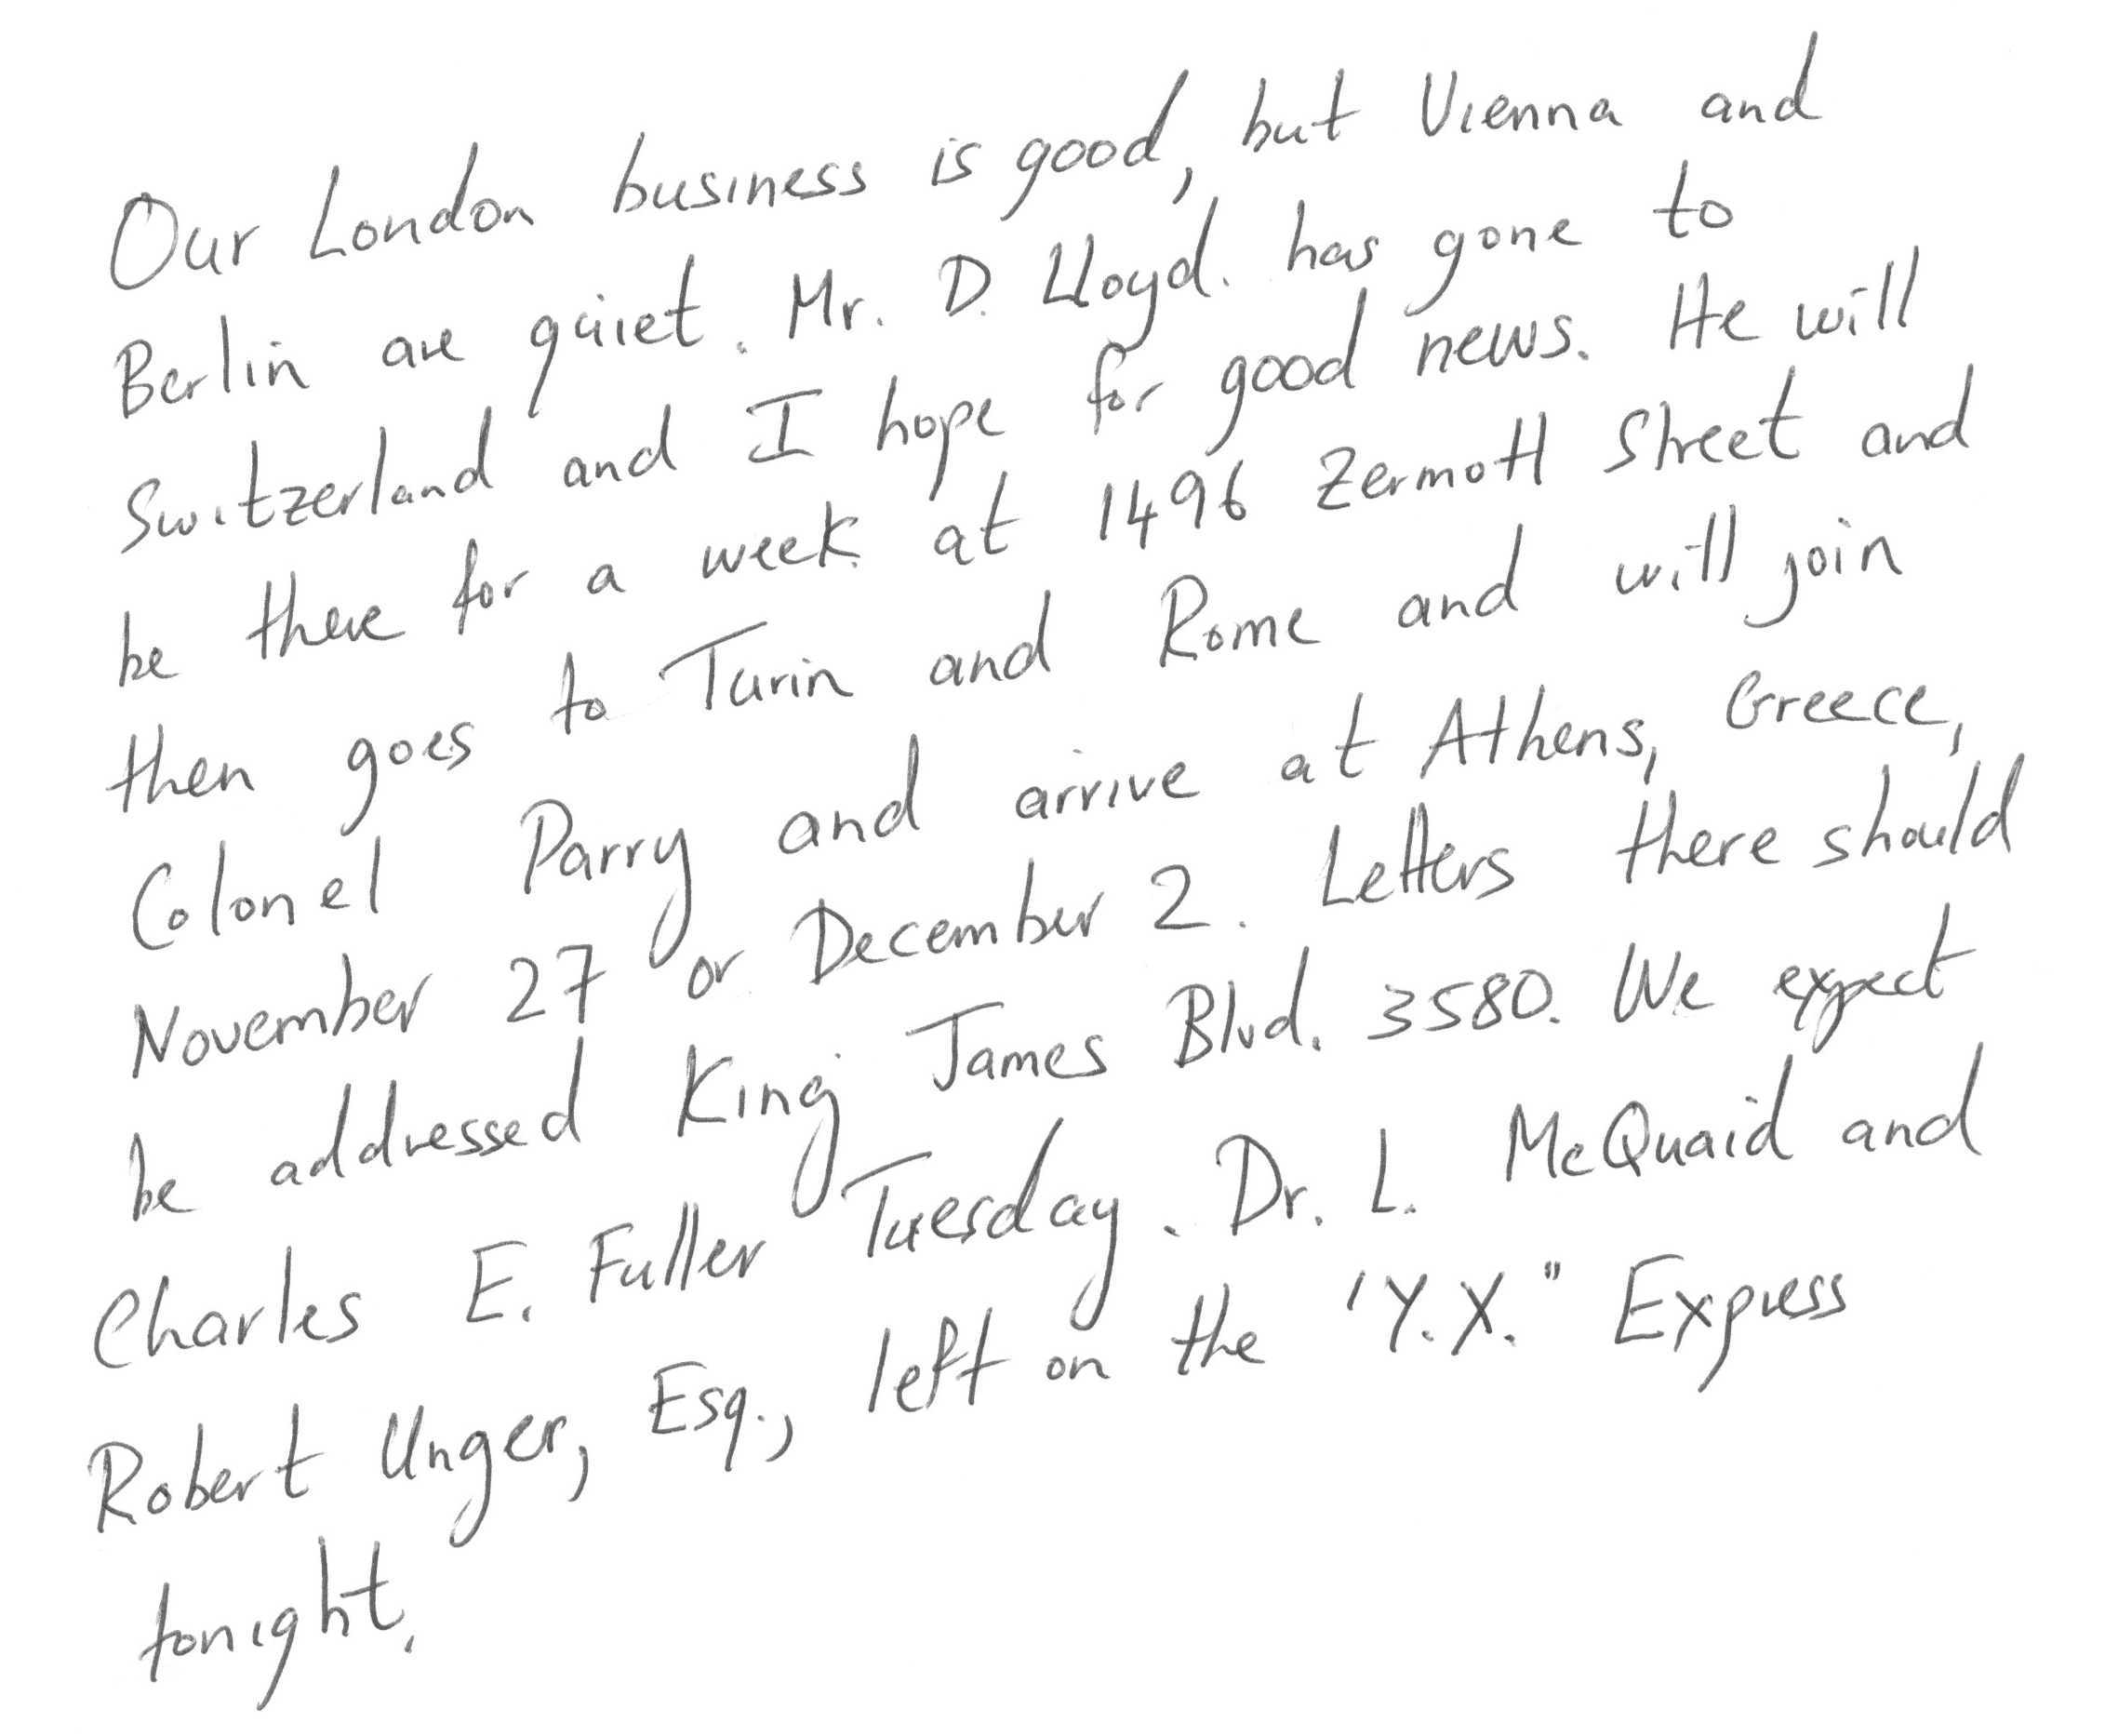 Our London business is good, but Vienna and
Berlin are quiet. Mr. D. Lloyd. has gone to
Switzerland and I hope for good news. He will
be there for a week at 1496 Zermott Street and
then goes to Turin and Rome and will join
Colonel Parry and arrive at Athens, Greece,
November 27 or December 2. Letters there should
be addressed King James Blvd. 3580. We expect
Charles E. Fuller Tuesday. Dr. L. McQuaid and
Robert Unger, Esq., left on the "Y.X." Express
tonight.